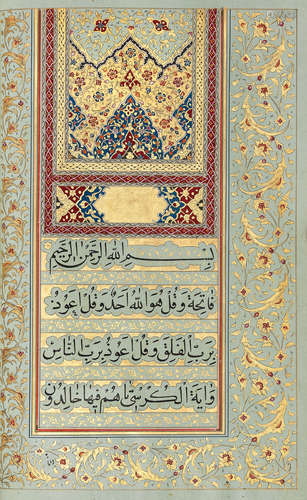 بِسْمِ اللهِ الرَّحْمٰنِ الرَّحِيْمِ
فَاتِحَة وَقُلْ هُوَ اللهُ اَحَدٌ وَقُلْ اَعُوذُ
بِرَبِّ الْفَلَقِ وَقُلْ اَعُوذُ بِرَبِّ النَّاسِ
وَايَةُ الْكُرْسِىِّ تا هُمْ فِيهَا خَالِدُونَ